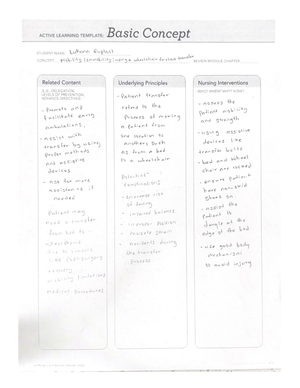 ACTIVE LEARNING TEMPLATE: Basic Concept
STUDENT NAME
CONCEPT mobility
REVIEW MODULE CHAPTER
Related Content
(E.G., DELEGATION,
LEVELS OF PREVENTION,
ADVANCE DIRECTIVES)
- Promote and
facilitate early
ambulation,
- Assist with
transfer by using
proper methods
and assistive
devices
- ask for more
assistance if
needed
Patient may
need a transfer
from bed to
wheelchair
due to
mobility limitations
medical procedures
Underlying Principles
- Patient transfer
refers to the
process of moving
a patient from
one location to
another such
as from a bed
to a wheelchair
Potential
complications
- increase risk
of falling
- impaired balance
- muscle
- accidents during
the transfer
process
Nursing Interventions
WHO? WHEN? WHY? HOW?
- assess the
patient mobility
and strength
- using assistive
devices like
transfer belts
- bed and wheel
chair are locked
- ensure patient
have non-skid
shoes on
- assist the
patient to
dangle at the
edge of the bed
- use good body
mechanisms
to avoid injury